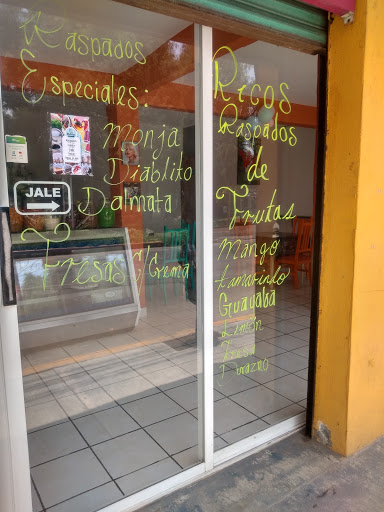 Raspados
Especiales:
Monja
Diablito
Dalmata
Fresas C/Crema
JALE
Ricos
Raspados
de
Frutas
Mango
tamarindo
Guayaba
Limón
Fresa
Durazno